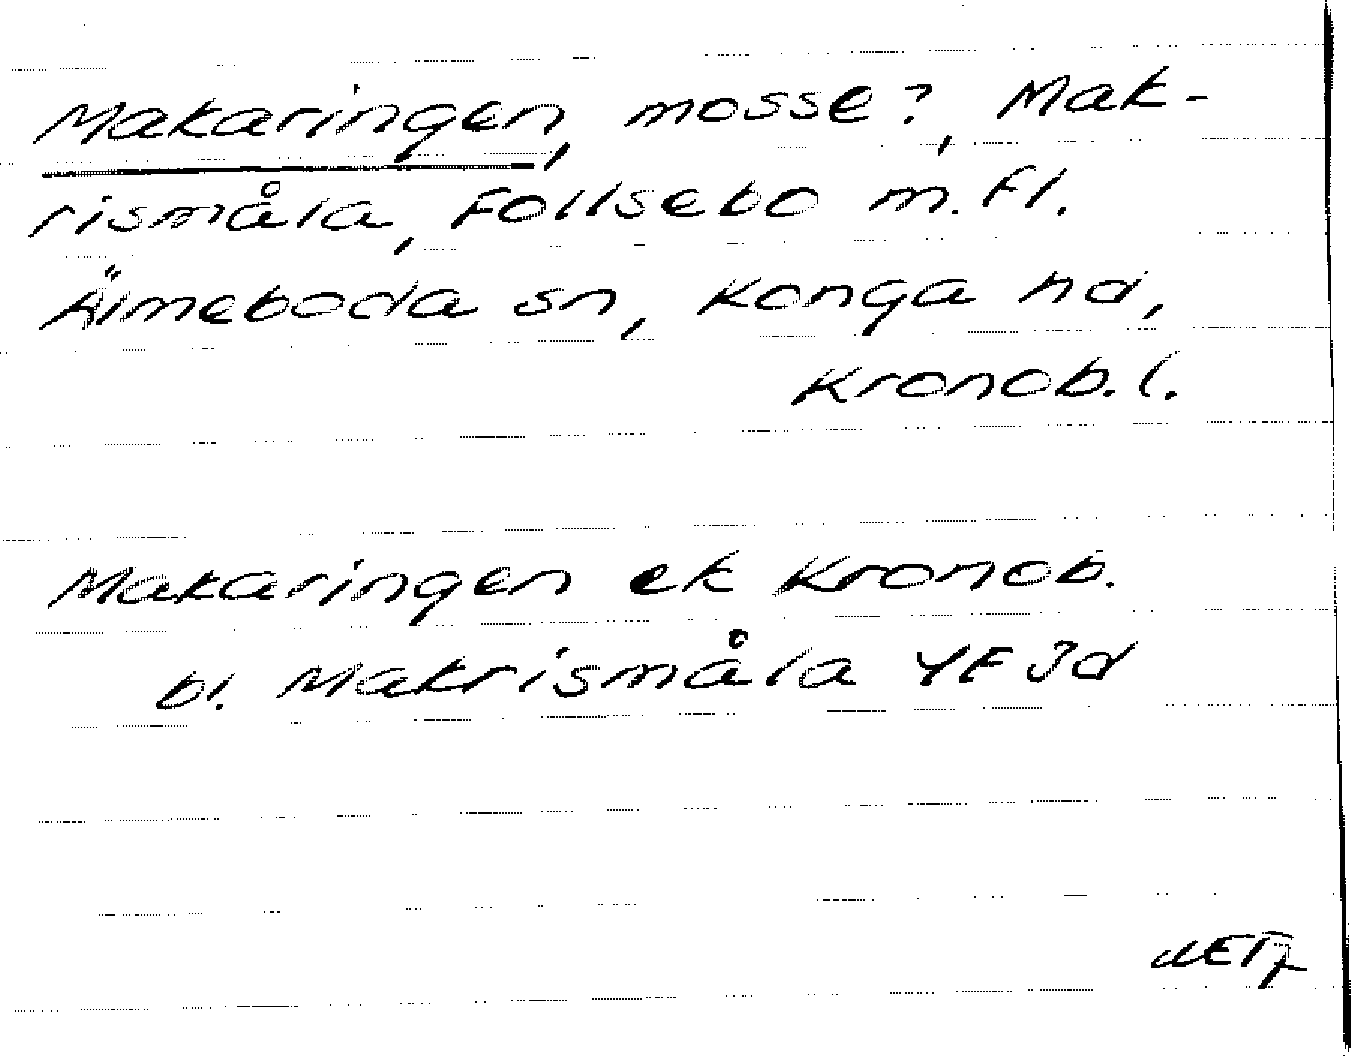 Makaringen, mosse?, Mak-
rismåla, Follsebo m.fl.
Älmeboda sn, Konga hd,
Kronob. l.
Makaringen ek Kronob.
bl. Makrismåla YE Jd